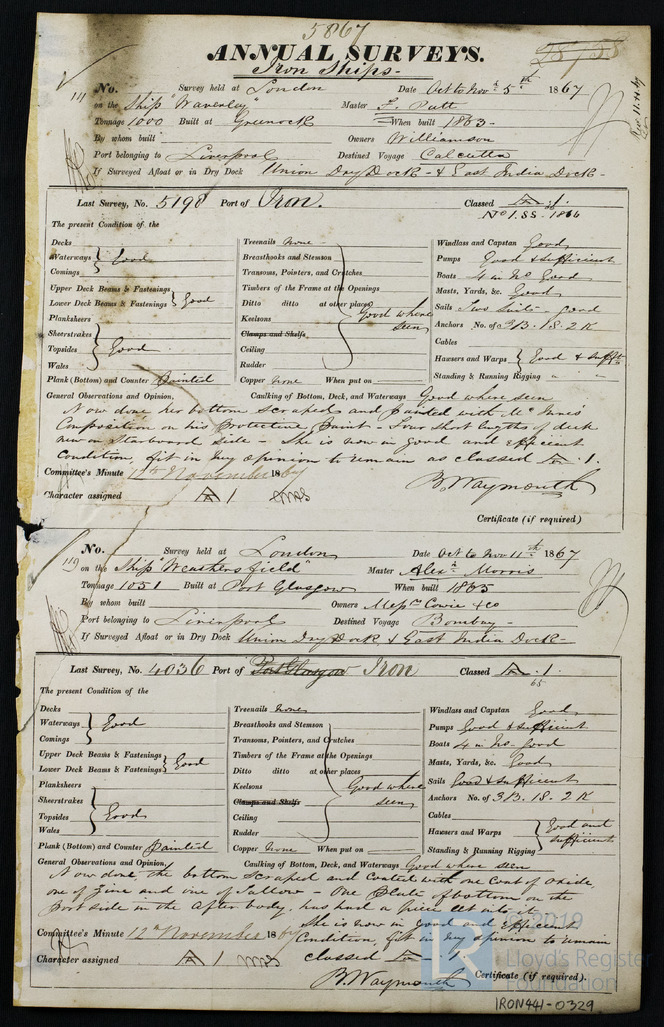 5867
ANNUAL SURVEYS.
Iron Ships -
No. Survey held at London Date Oct to Novr 5th 1867
on the Ship "Waverley" Master F. Tutt
Tonnage 1000 Built at Greenock When built 1863 -
By whom built Owners Williamson
Port belonging to Liverpool Destined Voyage Calcutta
If Surveyed Afloat or in Dry Dock Union Dry Dock - & East India Dock -
Last Survey, No. 5198 Port of Iron. Classed A 1.
No 1. SS. - 1866
The present Condition of the
Decks
Waterways } Good
Comings
Upper Deck Beams & Fastenings
Lower Deck Beams & Fastenings } Good
Planksheers
Sheerstrakes
Topsides } Good
Wales
Plank (Bottom) and Counter Painted
Treenails None -
Breasthooks and Stemson
Transoms, Pointers, and Crutches
Timbers of the Frame at the Openings
Ditto ditto at other places
Keelsons } Good where seen
Clamps and Shelfs
Ceiling
Rudder
Copper None When put on
Windlass and Capstan Good
Pumps Good & sufficient
Boats 4 in No Good
Masts, Yards, &c. Good
Sails Two Suits - good
Anchors No. of 3 B. 1 S. 2 K
Cables
Hawsers and Warps } Good & sufft
Standing & Running Rigging "
General Observations and Opinion, Caulking of Bottom, Deck, and Waterways Good where seen
Now done, her bottom scraped and painted with Mc Innes'
Composition on his Protective paint - Four short lengths of deck
new on Starboard side - She is now in good and efficient
Condition, fit in my opinion to remain as classed A. 1.
Committee's Minute 12th November 1867
B. Waymouth
Character assigned A 1
Certificate (if required)
No. Survey held at London Date Oct to Nov 11th 1867
119 on the Ship "Weathersfield" Master Alexr Morris
Tonnage 1051 Built at Port Glasgow When built 1865
By whom built Owners Messrs Cowie & co
Port belonging to Liverpool Destined Voyage Bombay -
If Surveyed Afloat or in Dry Dock Union Dry Dock & East India Dock -
Last Survey, No. 4036 Port of Port Glasgow Iron Classed A. 1.
65
The present Condition of the
Decks
Waterways } Good
Comings
Upper Deck Beams & Fastenings
Lower Deck Beams & Fastenings } Good
Planksheers
Sheerstrakes
Topsides } Good
Wales
Plank (Bottom) and Counter Painted
Treenails None
Breasthooks and Stemson
Transoms, Pointers, and Crutches
Timbers of the Frame at the Openings
Ditto ditto at other places
Keelsons } Good where seen
Clamps and Shelfs
Ceiling
Rudder
Copper None When put on
Windlass and Capstan Good
Pumps Good & sufficient
Boats 4 in No. Good
Masts, Yards, &c. Good
Sails Good & sufficient
Anchors No. of 3 B. 1 S. 2 K
Cables
Hawsers and Warps } Good and sufficient
Standing & Running Rigging
General Observations and Opinion, Caulking of Bottom, Deck, and Waterways Good where seen
Now done, the bottom scraped and Coated with one Coat of Oxide,
one of Zinc and one of Tallow - One Plate of bottom on the
Port side in the After body, has had a piece let into it
She is now in good and efficient
Committee's Minute 12th November 1867
Condition, fit in my opinion to remain
Character assigned A 1
classed A 1
B. Waymouth
Certificate (if required).
© 2019
LR Lloyd's Register
Foundation
IRON441-0329